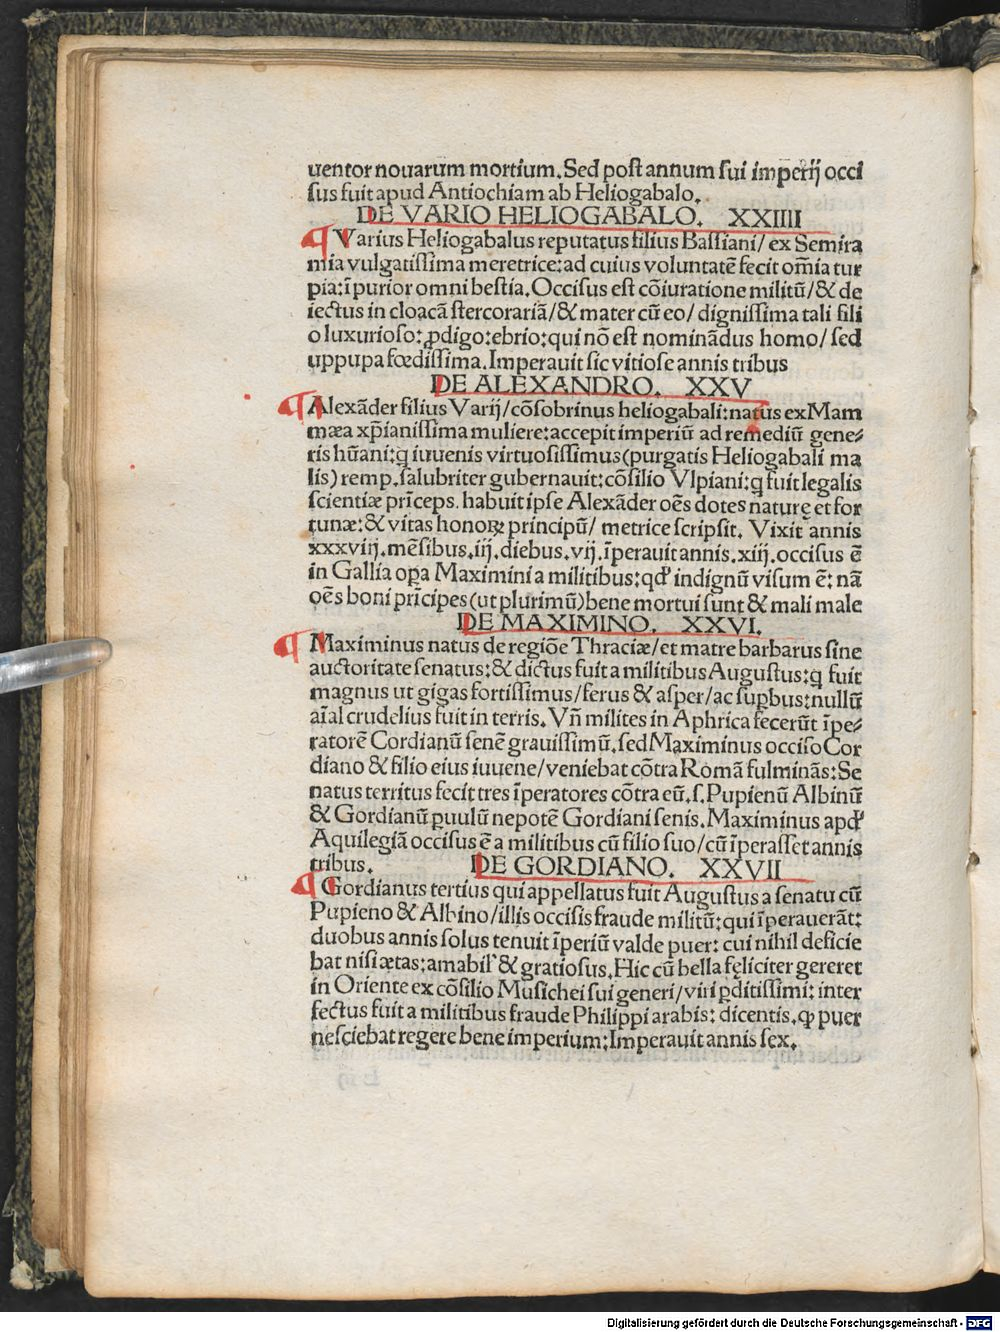 uentor nouarum mortium. Sed post annum sui imperij occi
sus fuit apud Antiochiam ab Heliogabalo.
DE VARIO HELIOGABALO. XXIIII
¶ Varius Heliogabalus reputatus filius Bassiani/ ex Semira
mia vulgatissima meretrice: ad cuius voluntatē fecit om̄ia tur
pia: ī purior omni bestia. Occisus est cōiuratione militū/ & de
iectus in cloacā stercorariā/ & mater cū eo/ dignissima tali fili
o luxurioso: ꝓdigo: ebrio: qui nō est nominādus homo/ sed
uppupa fœdissima. Imperauit sic vitiose annis tribus
DE ALEXANDRO. XXV
¶ Alexāder filius Varij/ cōsobrinus heliogabali: natus ex Mam
mæa xp̄ianissima muliere: accepit imperiū ad remediū gene⸗
ris hūani: q iuuenis virtuosissimus (purgatis Heliogabali ma
lis) remp. salubriter gubernauit: cōsilio Vlpiani: q fuit legalis
scientiæ prīceps. habuit ipse Alexāder oēs dotes naturę et for
tunæ: & vitas honoꝝ principū/ metrice scripsit. Vixit annis
xxxviij. mēsibus. iij. diebus. vij. īperauit annis. xiij. occisus ē
in Gallia oꝑa Maximini a militibus: qd' indignū visum ē: nā
oēs boni prīcipes (ut plurimū) bene mortui sunt & mali male
DE MAXIMINO. XXVI.
¶ Maximinus natus de regiōe Thraciæ/ et matre barbarus sine
auctoritate senatus: & dictus fuit a militibus Augustus: q fuit
magnus ut gigas fortissimus/ ferus & asper/ ac suꝑbus: nullū
aīal crudelius fuit in terris. Vn̄ milites in Aphrica fecerūt īpe⸗
ratorē Cordianū senē grauissimū. sed Maximinus occiso Cor
diano & filio eius iuuene/ veniebat cōtra Romā fulminās: Se
natus territus fecit tres īperatores cōtra eū. s. Pupienū Albinū
& Gordianū ꝑuulū nepotē Gordiani senis. Maximinus apd'
Aquilegiā occisus ē a militibus cū filio suo/ cū īperasset annis
tribus. DE GORDIANO. XXVII
¶ Gordianus tertius qui appellatus fuit Augustus a senatu cū
Pupieno & Albino/ illis occisis fraude militū: qui īperauerāt:
duobus annis solus tenuit īperiū valde puer: cui nihil deficie
bat nisi ætas: amabil' & gratiosus. Hic cū bella fęliciter gereret
in Oriente ex cōsilio Musichei sui generi/ viri ꝑditissimi: inter
fectus fuit a militibus fraude Philippi arabis: dicentis. ꝙ puer
nesciebat regere bene imperium: Imperauit annis sex.
Digitalisierung gefördert durch die Deutsche Forschungsgemeinschaft - DFG